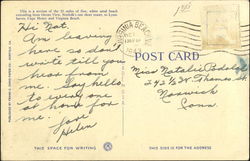 This is a section of the 25 miles of fine, white sand beach
extending from Ocean View, Norfolk's one shore resort, to Lynn-
haven, Cape Henry and Virginia Beach.
Hi Nat.
Am leaving
here so don't
write till you
hear from
me. Say hello
to everyone
at home for
me. Love
Helen
THIS SPACE FOR WRITING
VIRGINIA BEACH
OCT
POST CARD
Miss Natalie
Thames St.
Norwich
Conn.
THIS SIDE IS FOR THE ADDRESS